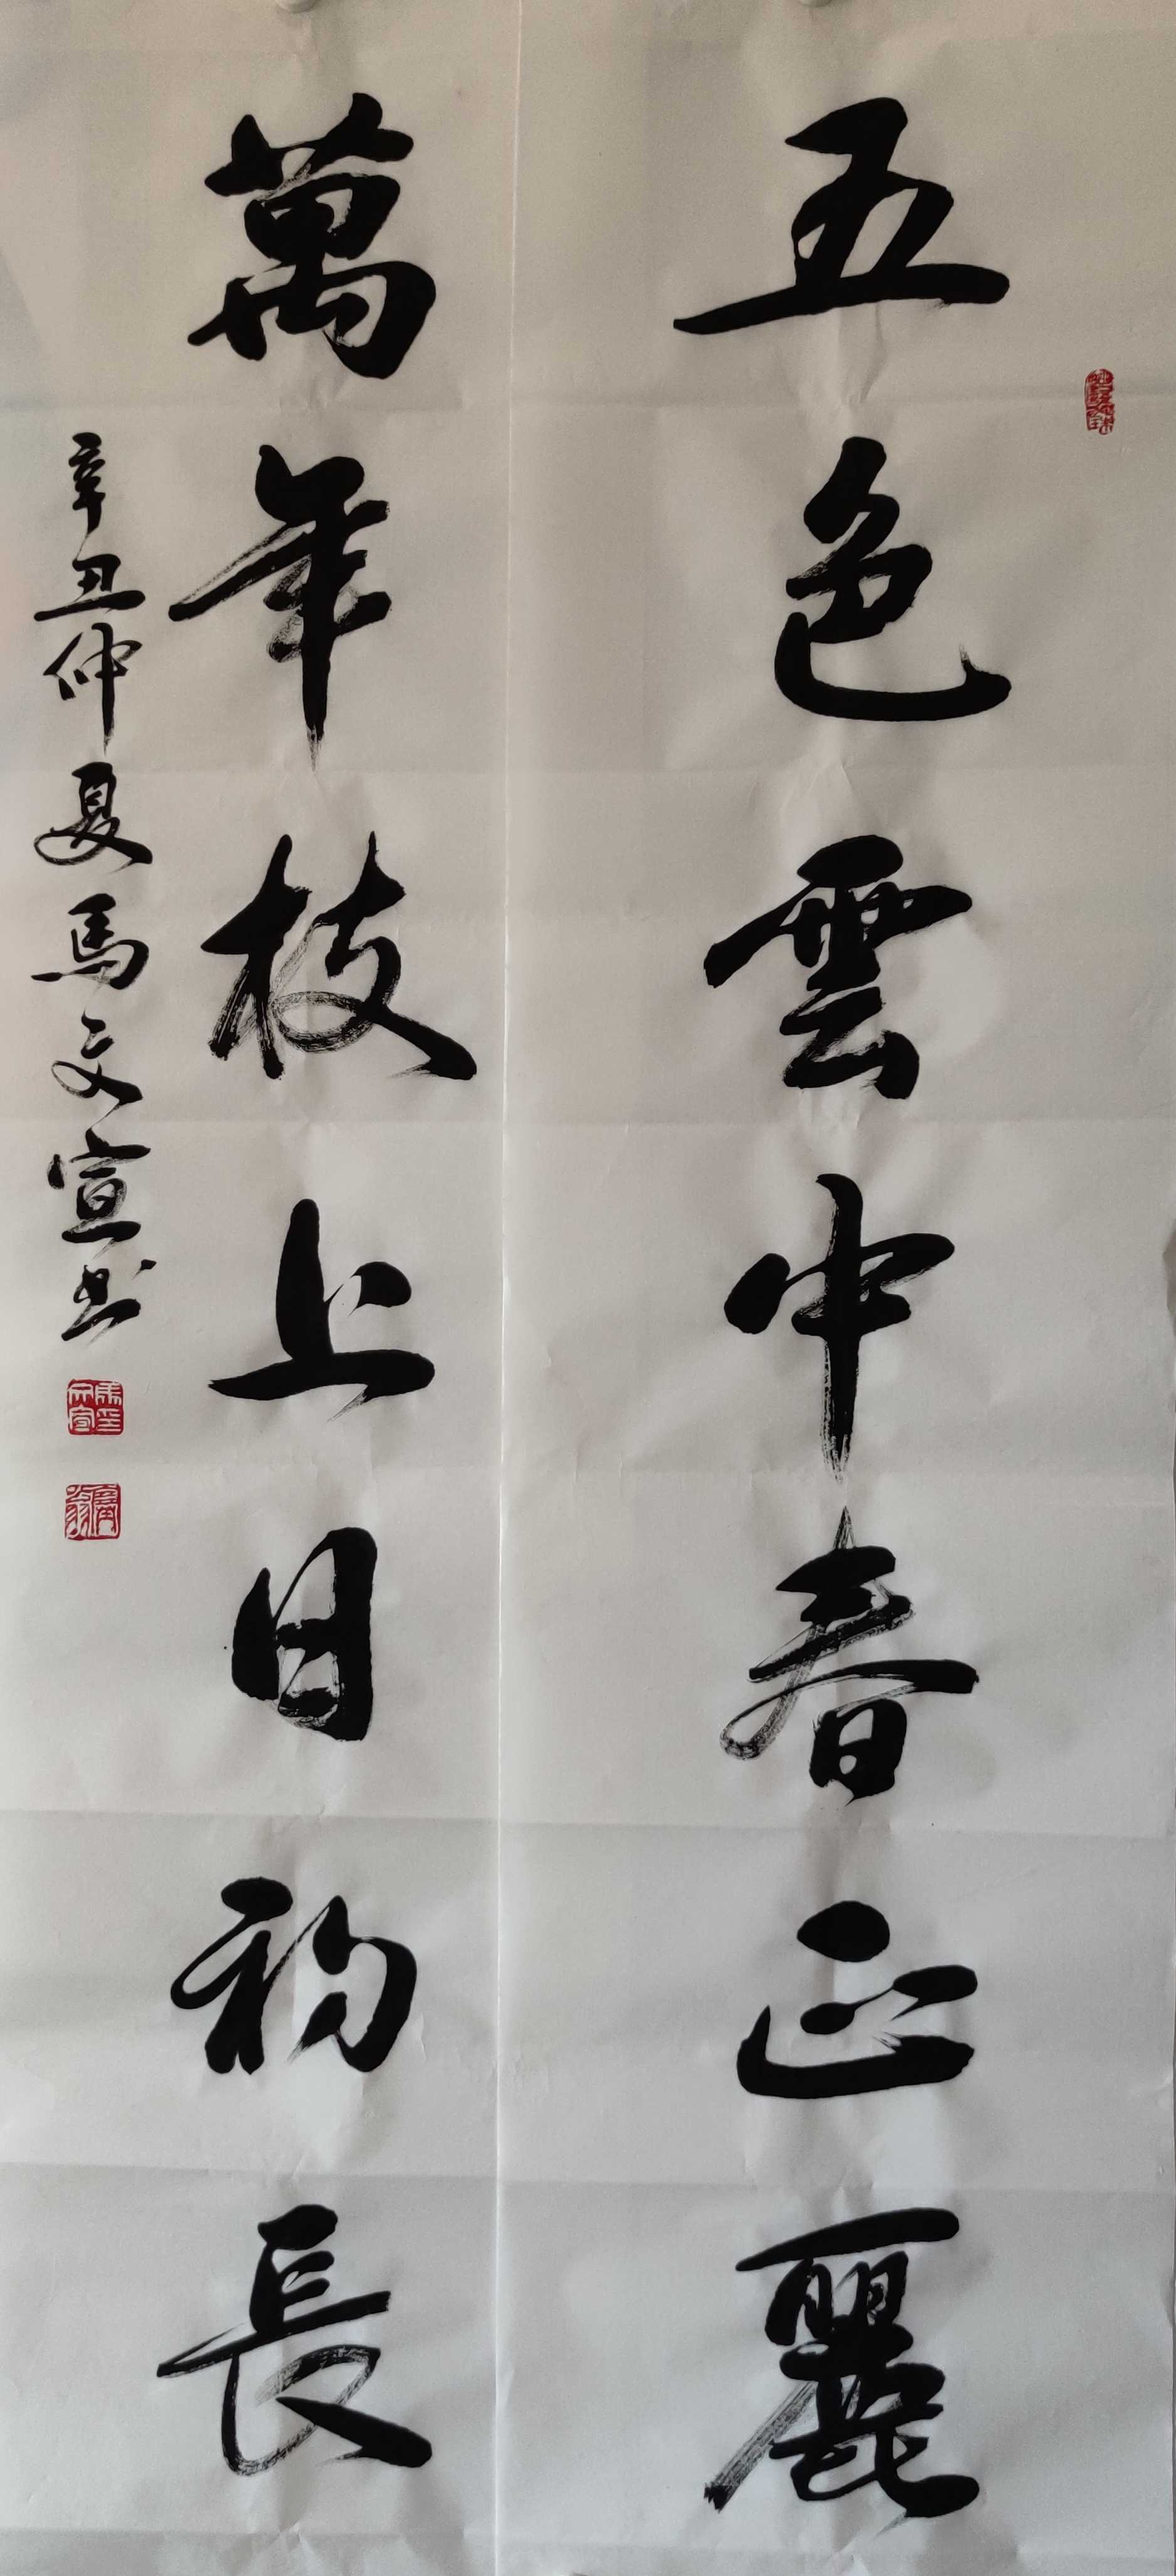 五色雲中春正麗
萬年枝上日初長
辛丑仲夏馬文宣书
馬印文宣